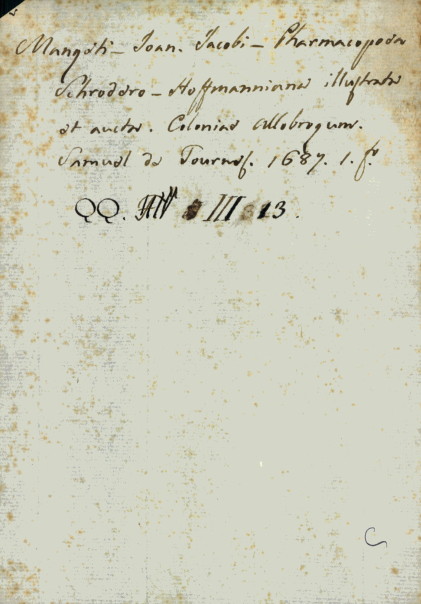 Mangeti – Joan. Jacobi – Pharmacopoea
Schrodero – Hoffmanniana illustrata
et aucta. Coloniae Allobrogum.
Samuel de Tournes. 1687. 1. f.
QQ. III 13.